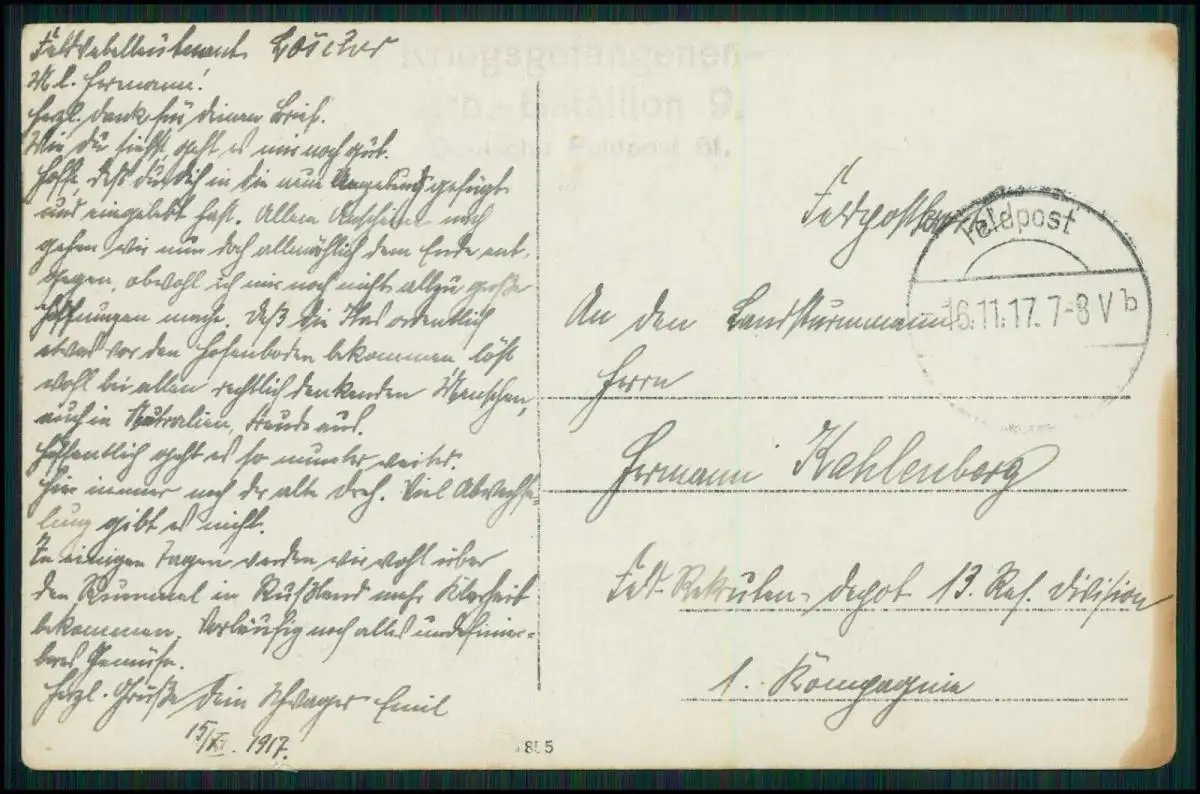 Feldwebelleutnant
M. l. Hermann!
Herzl. Dank für deinen Brief.
Wie du siehst geht es mir noch gut.
Hoffe, daß du dich in die neue Umgebung gefügt
und eingelebt hast. Allem Anscheine nach
gehen wir nun doch allmählich dem Ende ent-
gegen, obwohl ich mir noch nicht allzu große
Hoffnungen mache. Daß die Itas ordentlich
etwas vor den Hosenboden bekommen, löst
wohl bei allen rechtlich denkenden Menschen,
auch in Neutralien, Freude aus.
Hoffentlich geht es so munter weiter.
Hier immer noch der alte Dreh. Viel Abwechse-
lung gibt es nicht.
In einigen Tagen werden wir wohl über
den Rummel in Rußland mehr Klarheit
bekommen. Vorläufig noch alles undefinier-
bares Gemüse.
Herzl. Grüße Dein Schwager Emil
15/XI. 1917.
Kriegsgefangenen-
Arb.-Bataillon 9.
Deutsche Feldpost 61.
Feldpostkarte
Feldpost
16.11.17. 7-8 V b
An den Landsturmmann
Herrn
Hermann Kahlenberg
Feld-Rekruten-Depot 13. Res. Division
1. Kompagnie